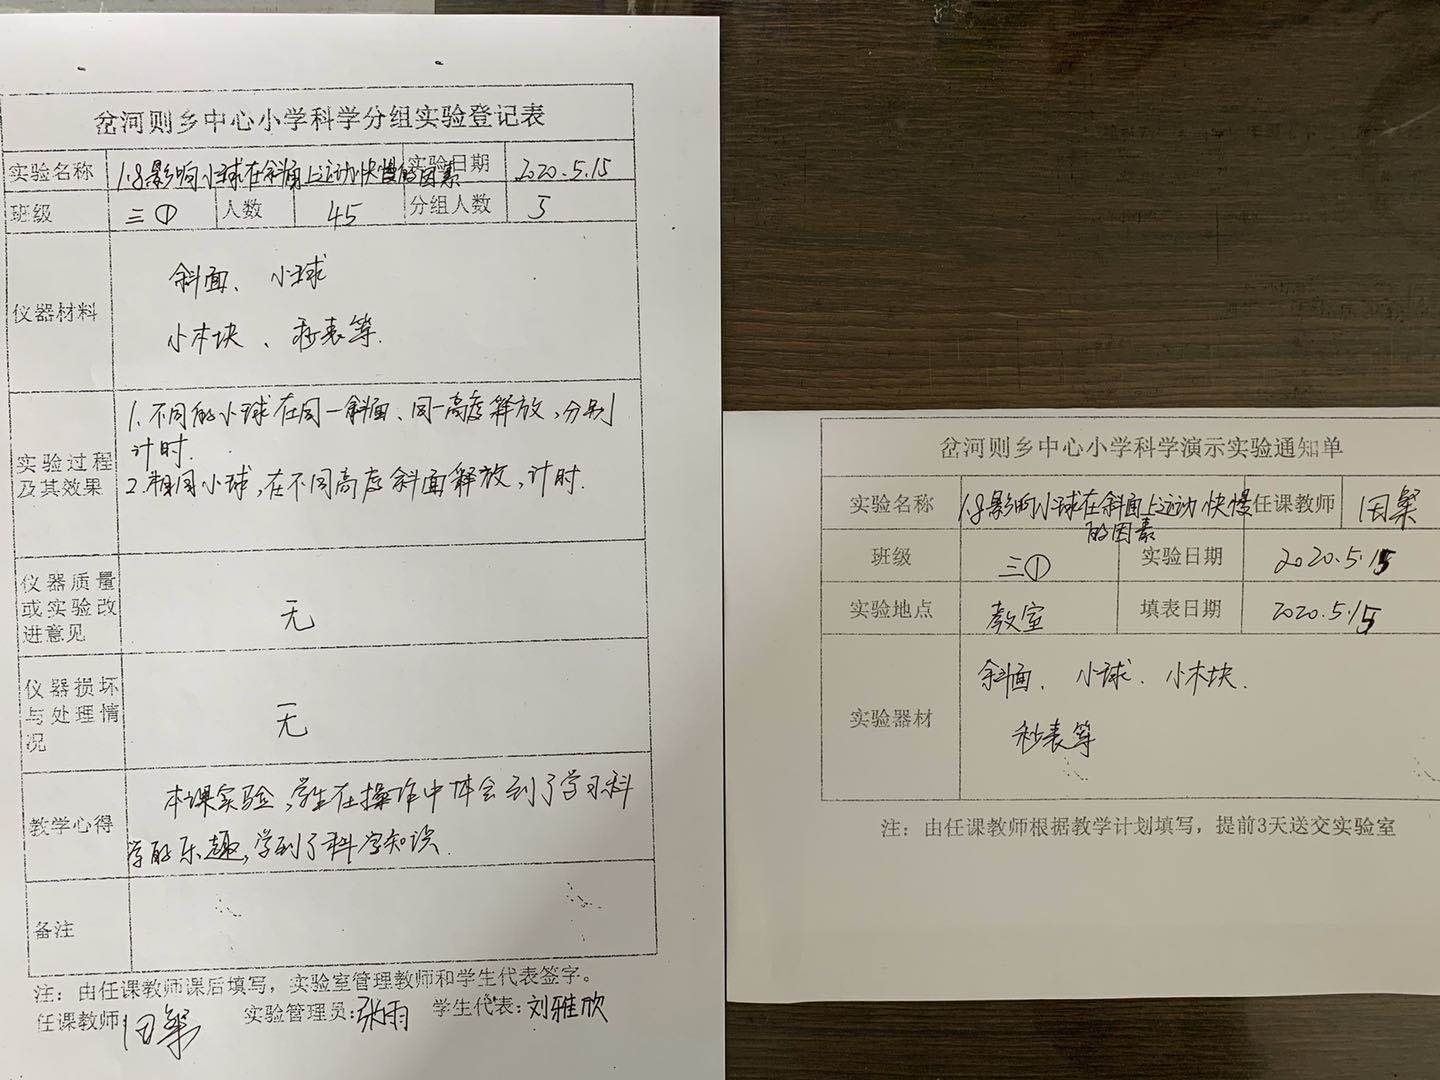 岔河则乡中心小学科学分组实验登记表
实验名称 1.8影响小球在斜面上运动快慢的因素 实验日期 2020.5.15
班级 三① 人数 45 分组人数 5
仪器材料
斜面、小球
小木块、秒表等.
实验过程及其效果
1.不同的小球在同一斜面、同一高度释放,分别
计时.
2.相同小球,在不同高度斜面释放,计时.
仪器质量
或实验改
进意见
无
仪器损坏
与处理情
况
无
教学心得
本课实验,学生在操作中体会到了学习科
学的乐趣,学到了科学知识.
备注
注:由任课教师课后填写,实验室管理教师和学生代表签字。
任课教师: 田 实验管理员:张雨 学生代表:刘雅欣
岔河则乡中心小学科学演示实验通知单
实验名称 1.8影响小球在斜面上运动快慢 任课教师 田
的因素
班级 三① 实验日期 2020.5.15
实验地点 教室 填表日期 2020.5.15
实验器材
斜面、小球、小木块.
秒表等
注:由任课教师根据教学计划填写,提前3天送交实验室